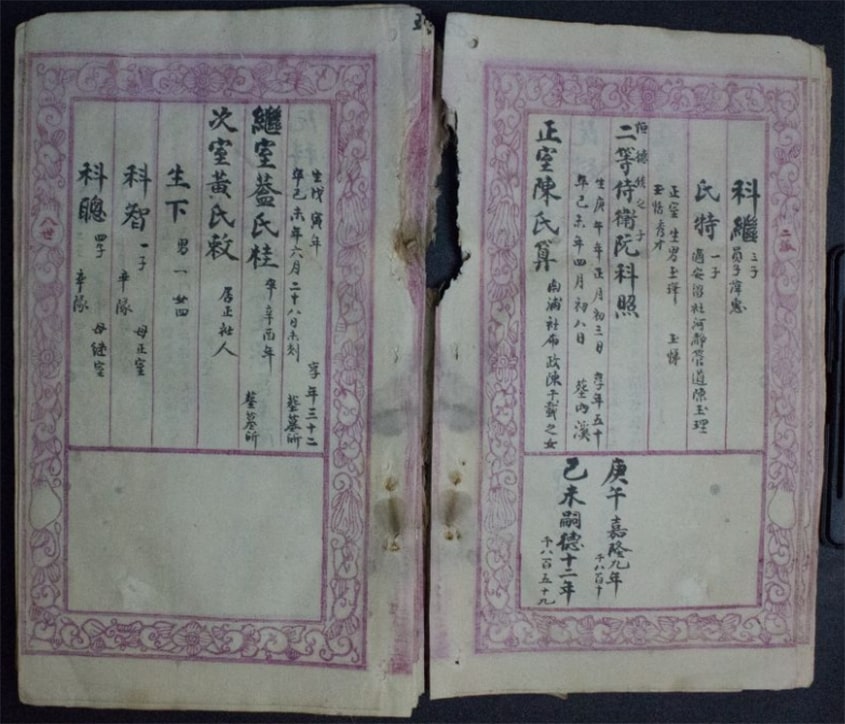 二派
科繼 三子
員子萍惠
氏特 一子
適安沼社河靜管道陳玉理
正室生男玉璿 玉惲
玉恬秀才
二等侍衛阮科照
生庚午年正月初三日 享年五十
卒己未年四月初八日 葬內溪
正室陳氏算 南浦社布政陳千載之女
庚午嘉隆九年
千八百十
己未嗣德十二年
千八百五十九
生戊寅年 享年三十二
卒己未年六月二十八日未刻 葬墓所
繼室蓋氏桂 卒辛酉年 葬墓所
次室黃氏敉 居正社人
生下 男一 女四
科智 一子 母正室
率隊
科聰 四子 母繼室
率隊
八世